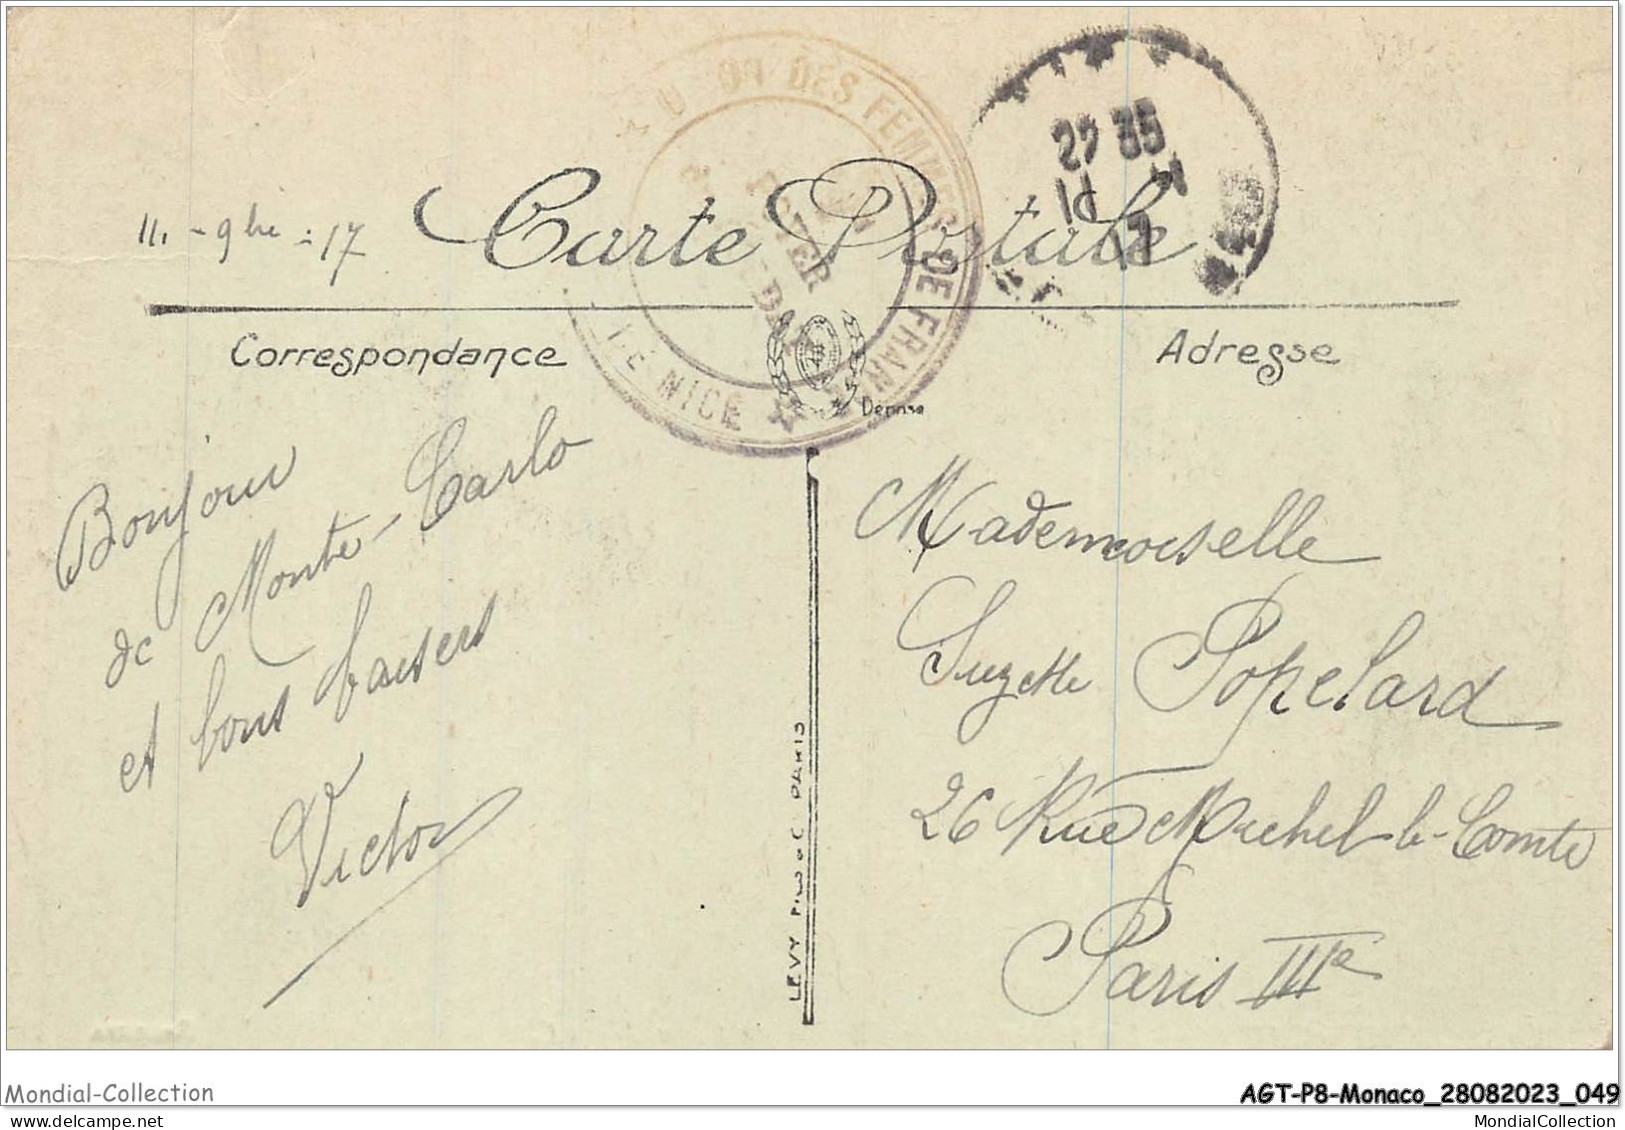 UNION DES FEMMES DE FRANCE
DE NICE
FOYER
22 35
11
11 - 9bre - 17
Carte Postale
Correspondance
Adresse
Déposé
Bonjour
de Monte-Carlo
et bons baisers
Victor
LEVY FILS & C PARIS
Mademoiselle
Suzette Popelard
26 Rue Michel-le-Comte
Paris IIIe
Mondial-Collection
AGT-P8-Monaco_28082023_049
MondialCollection